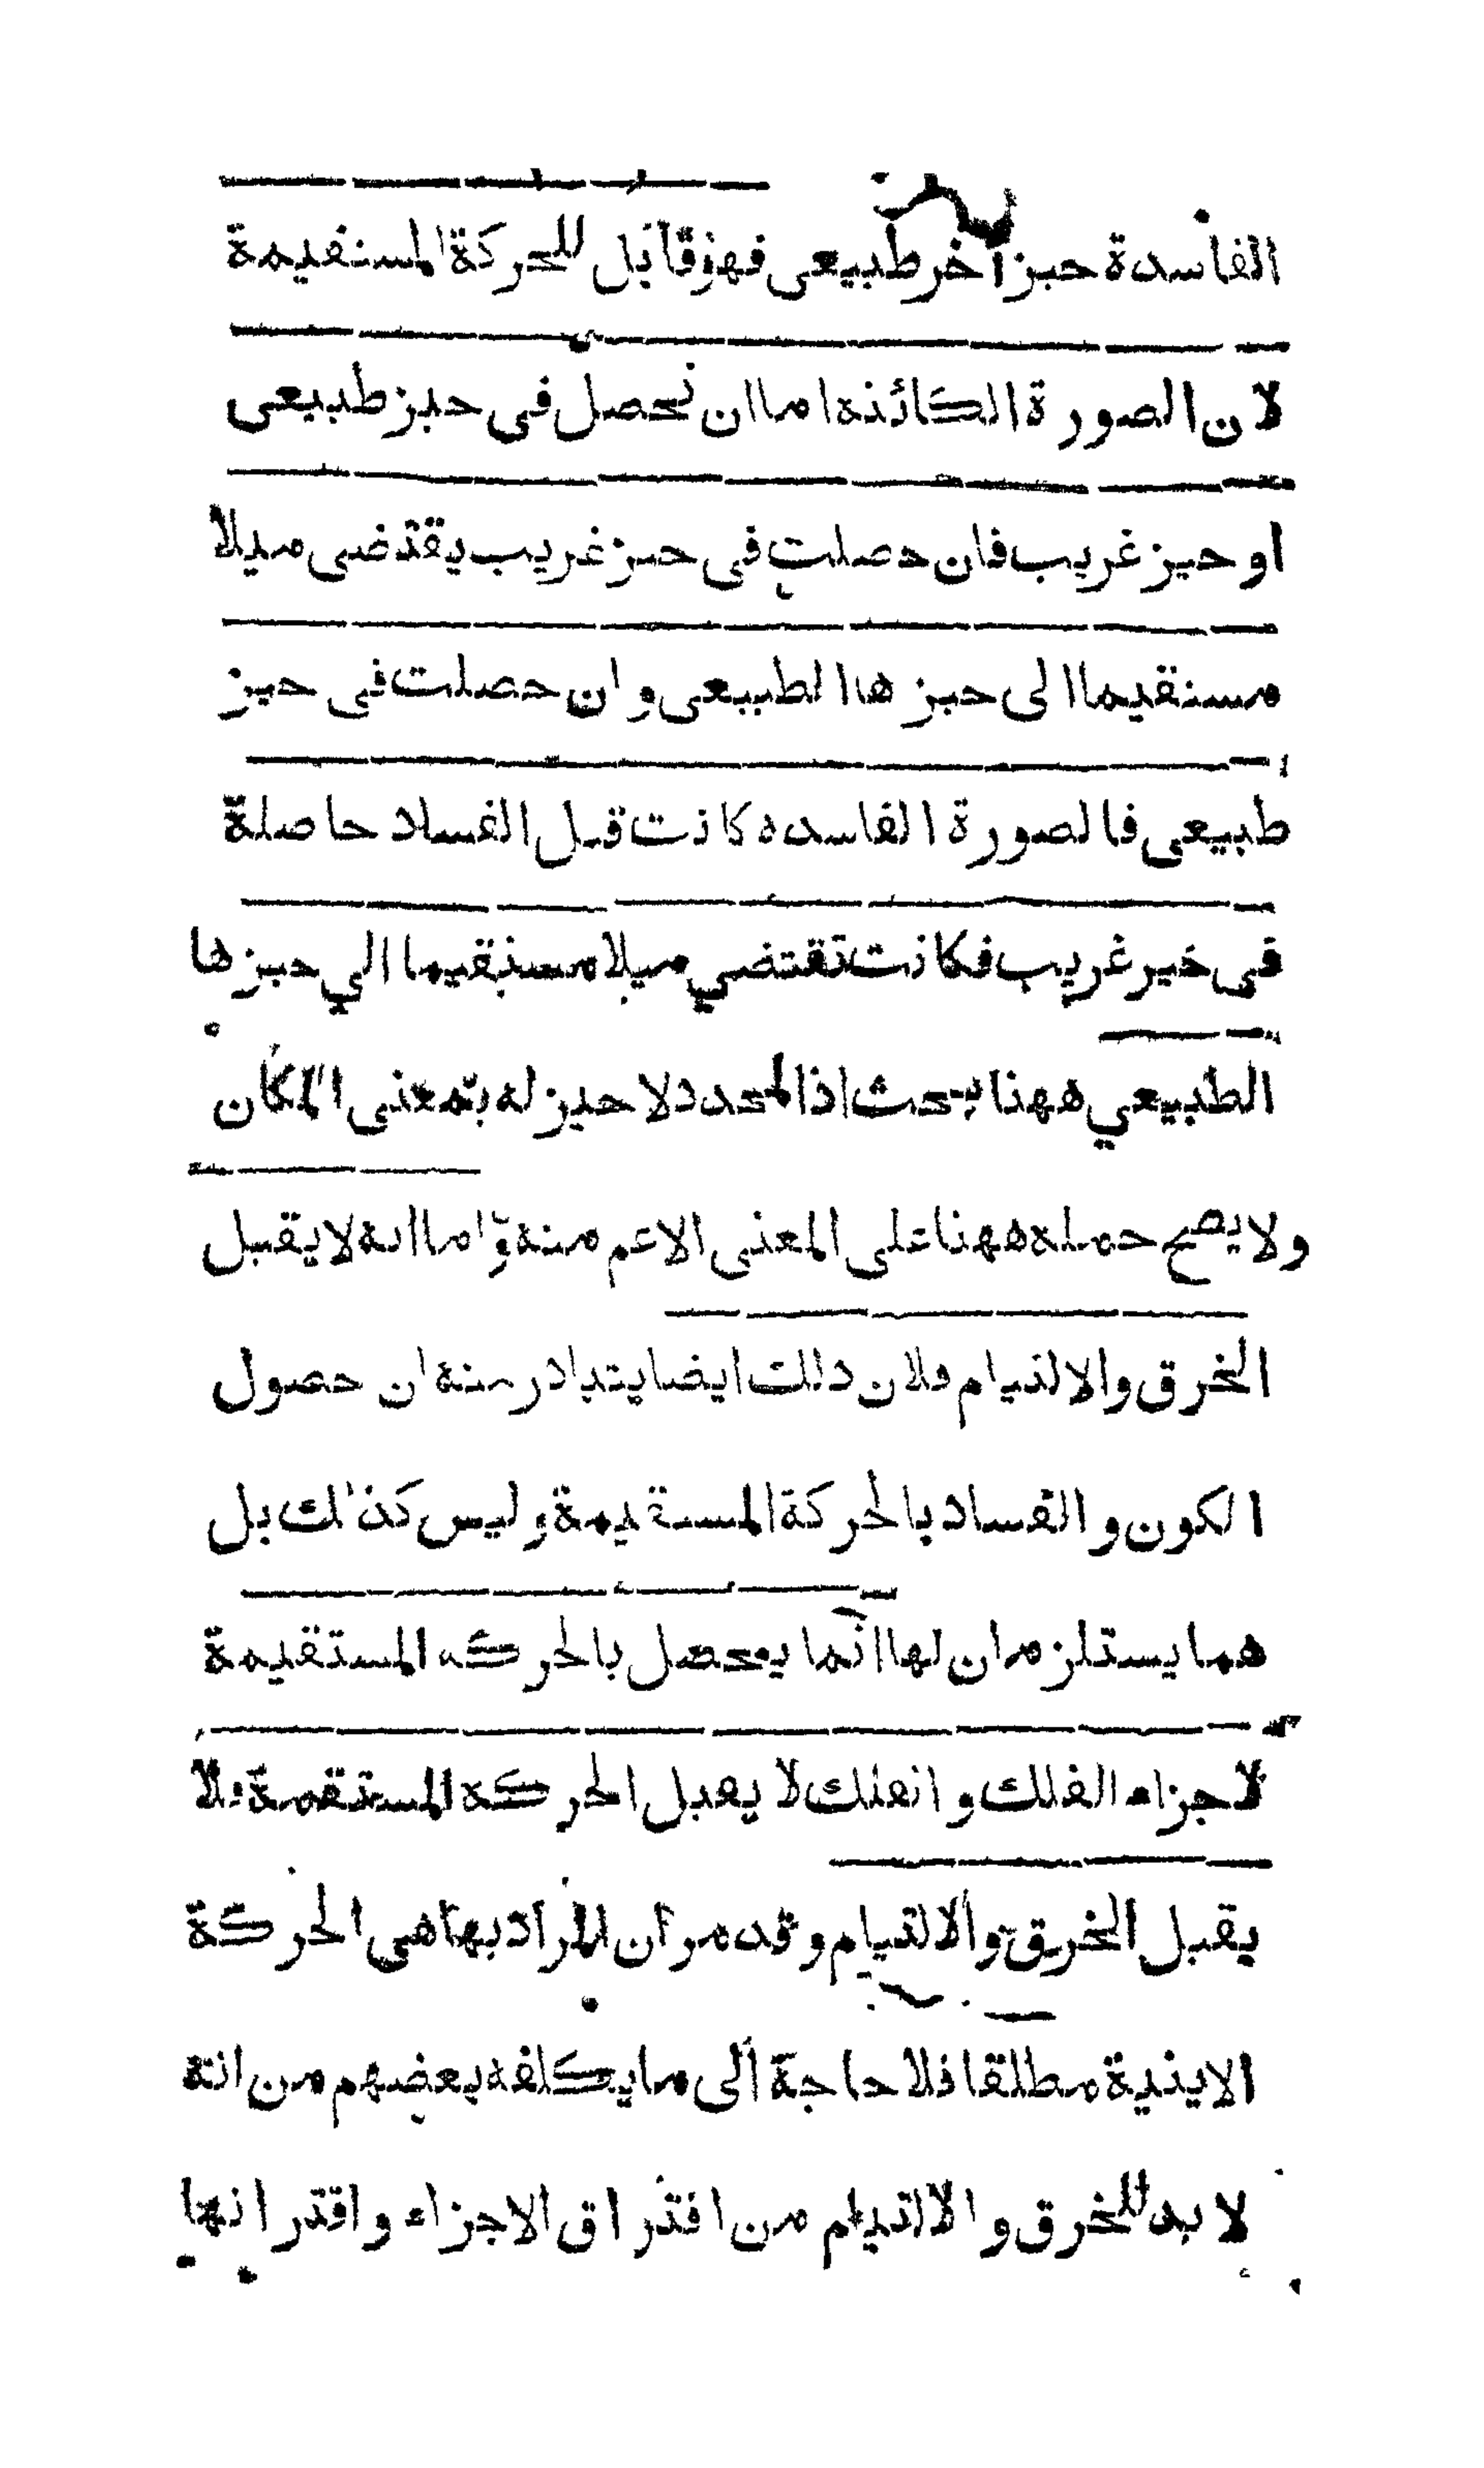 الفاسدة حيز آخر طبيعى فهو قابل للحركة المستقيمة
لان الصورة الكائنة اما ان تحصل فى حيز طبيعى
او حيز غريب فان حصلت فى حيز غريب يقتضى ميلا
مستقيما الى حيزها الطبيعى وان حصلت فى حيز
طبيعى فالصورة الفاسده كانت قبل الفساد حاصلة
فى حيز غريب فكانت تقتضي ميلا مستقيما الي حيزها
الطبيعي ههنا بحث اذ المحدد لا حيز له بمعنى المكان
ولا يصح حمله ههنا على المعنى الاعم منه واما انه لا يقبل
الخرق والالتيام فلان ذلك ايضا يتبادر منه ان حصول
الكون والفساد بالحركة المستقيمة وليس كذلك بل
هما يستلزمان لها انما يحصل بالحركه المستقيمة
لاجزاء الفلك والفلك لا يقبل الحركه المستقيمة فلا
يقبل الخرق والالتيام وقد مر ان المراد بها هى الحركة
الاينية مطلقا فلا حاجة الى ما يكلفه بعضهم من انه
لا بد للخرق والالتيام من افتراق الاجزاء واقترانها